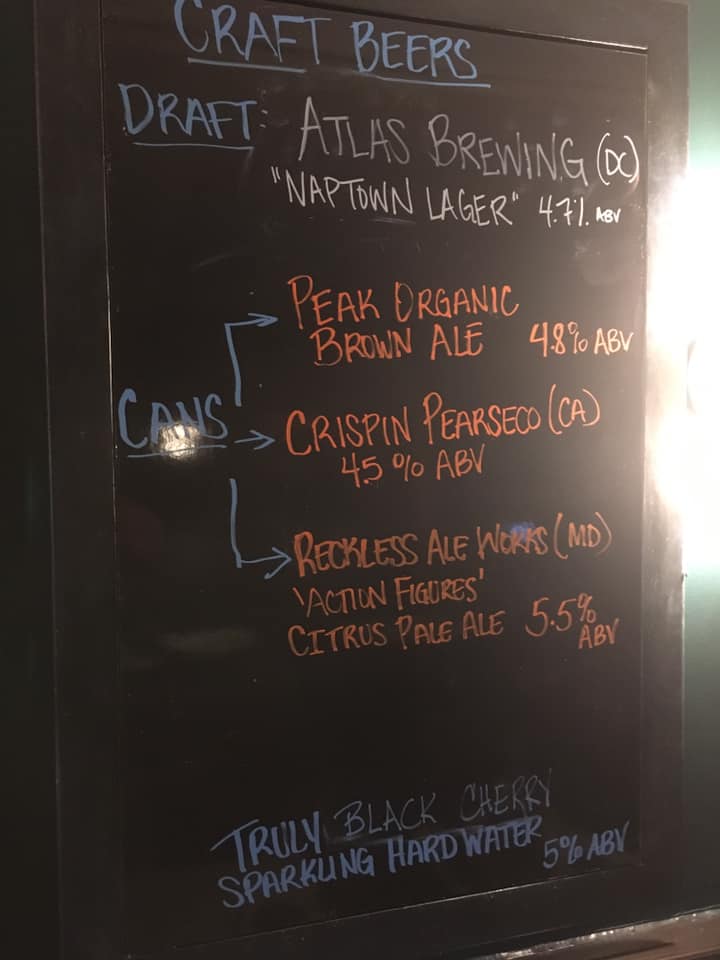 CRAFT BEERS
DRAFT: ATLAS BREWING (DC)
"NAPTOWN LAGER" 4.7% ABV
PEAK ORGANIC
BROWN ALE 4.8% ABV
CANS
CRISPIN PEARSECO (CA)
4.5% ABV
RECKLESS ALE WORKS (MD)
'ACTION FIGURES'
CITRUS PALE ALE 5.5%
ABV
TRULY BLACK CHERRY
SPARKLING HARD WATER 5% ABV